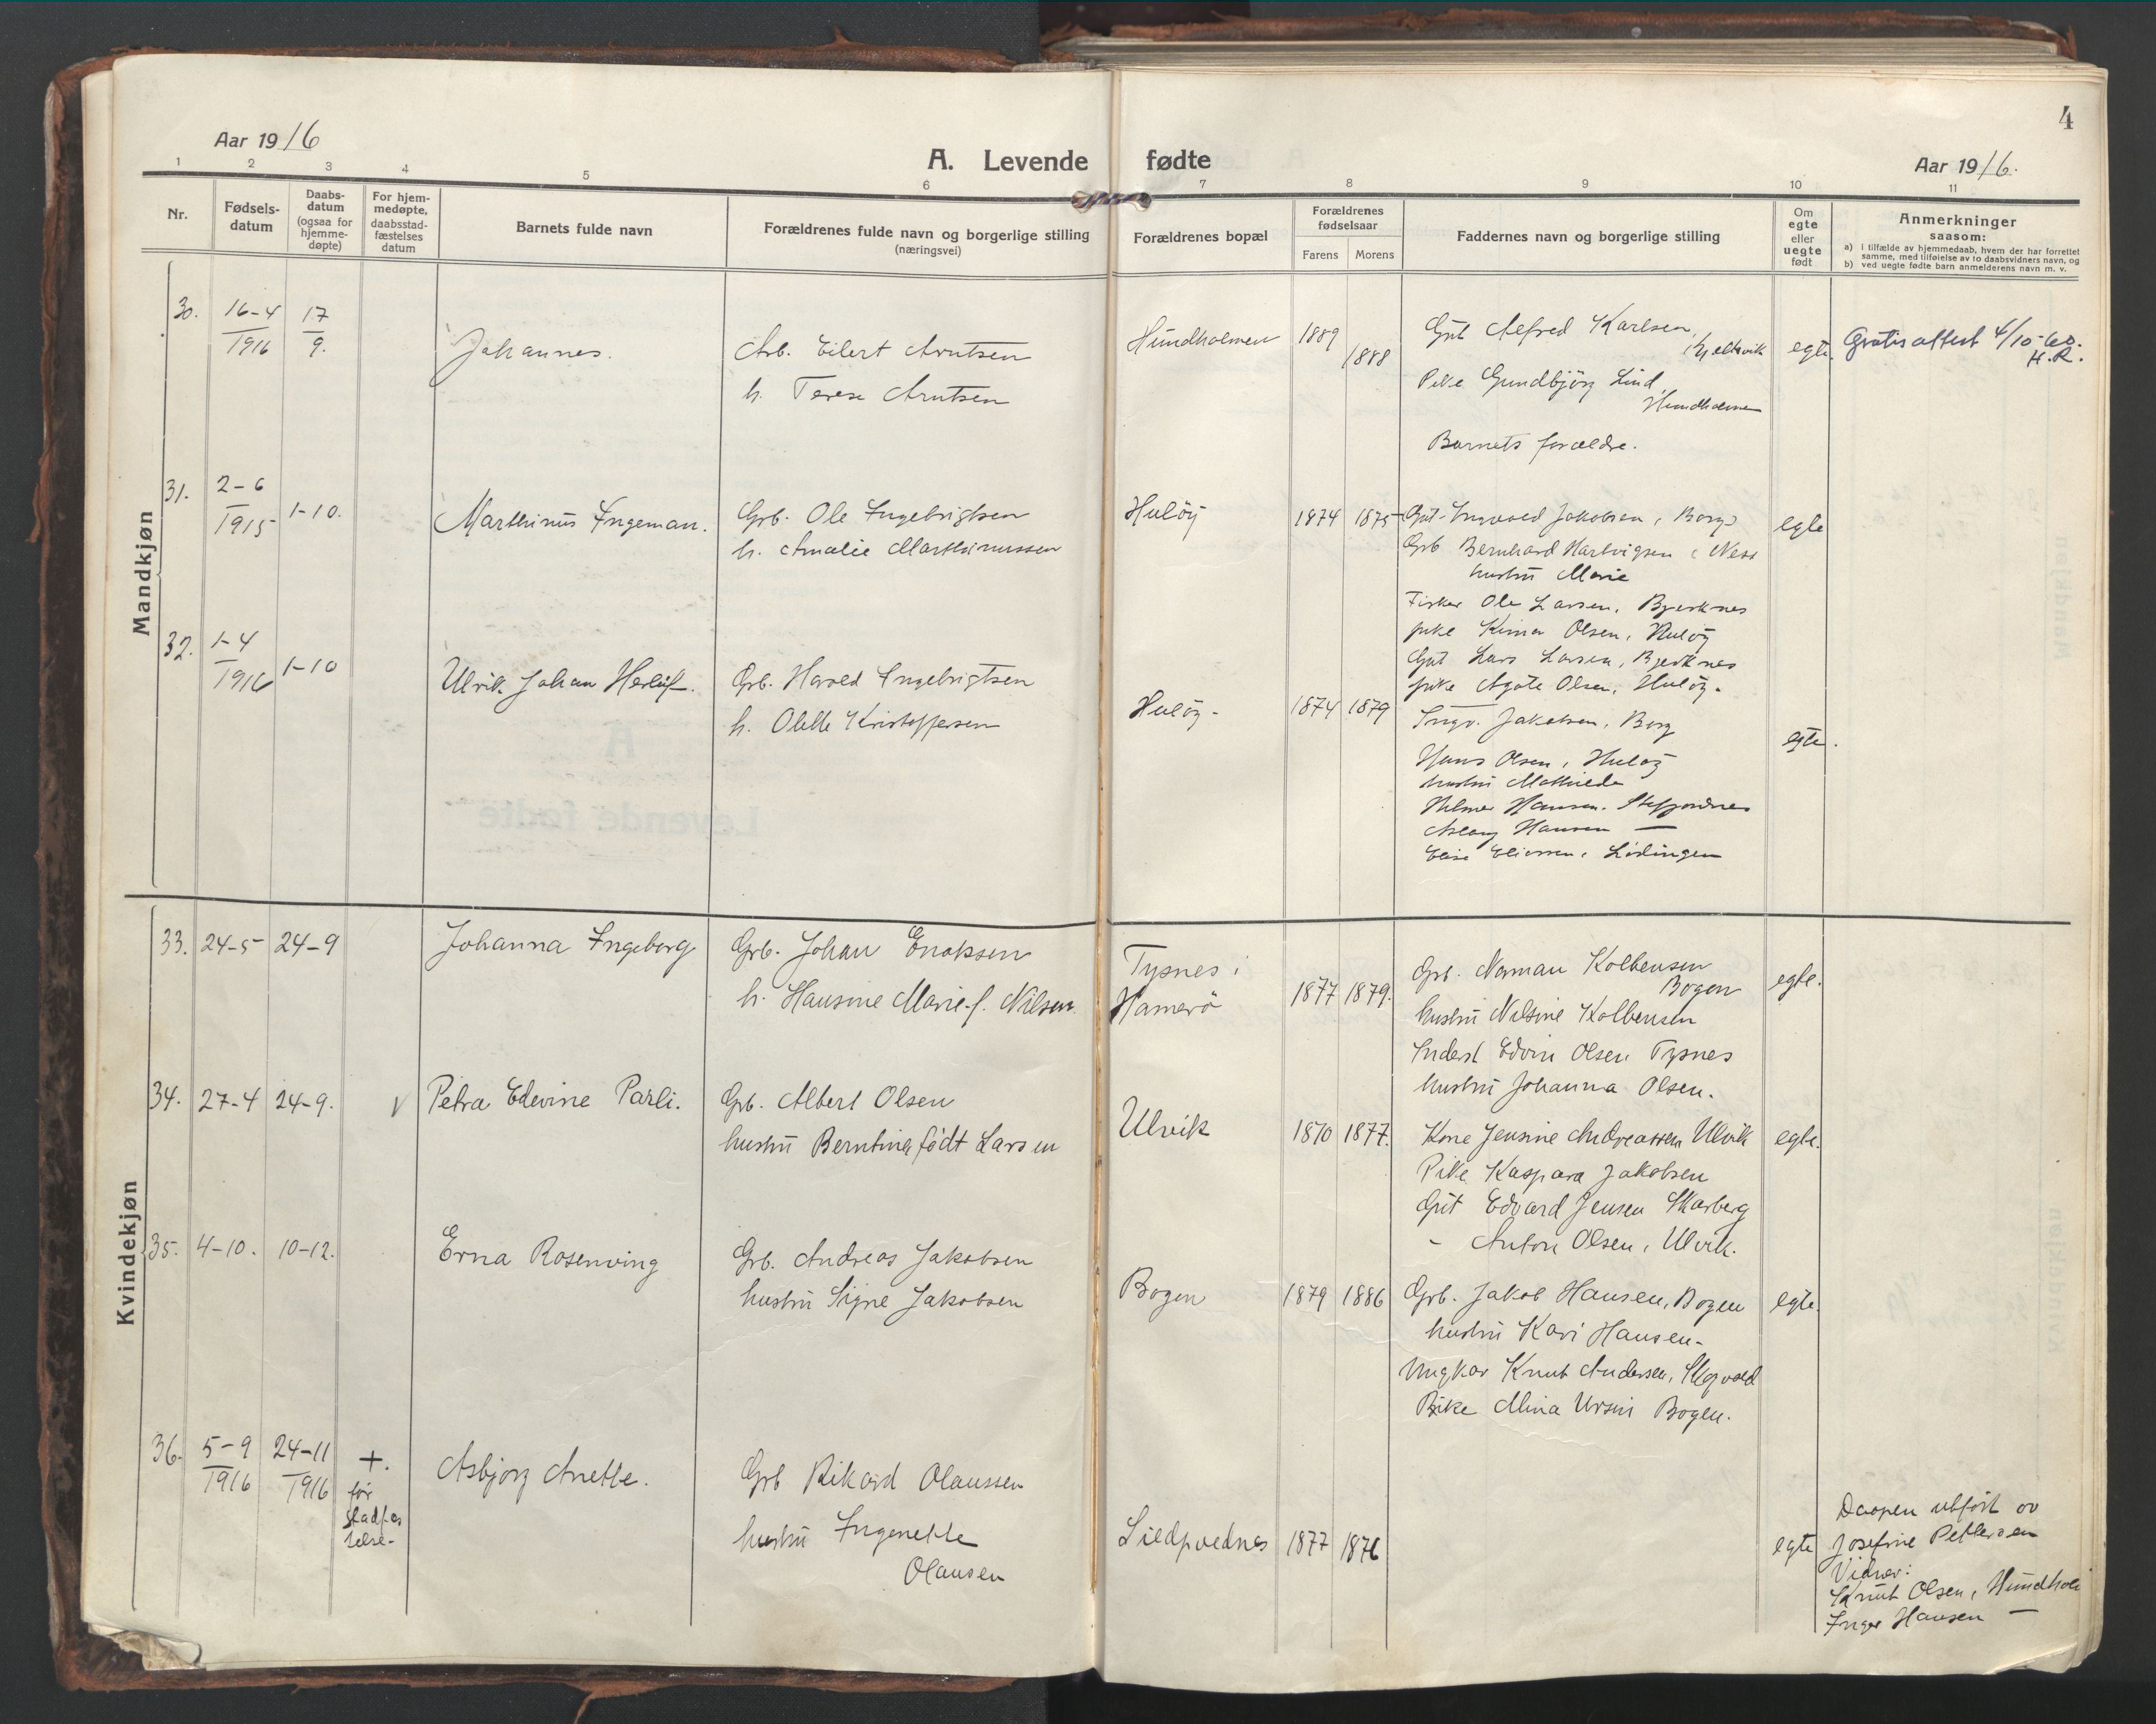 4
Aar 1916
A. Levende fødte
Aar 1916.
1 2 3 4 5 6 7 8 9 10 11
Nr.
Fødsels-
datum
Daabs-
datum
(ogsaa for
hjemme-
døpte)
For hjem-
medøpte,
daabsstad-
fæstelses
datum
Barnets fulde navn
Forældrenes fulde navn og borgerlige stilling
(næringsvei)
Forældrenes bopæl
Forældrenes
fødselsaar
Farens Morens
Faddernes navn og borgerlige stilling
Om
egte
eller
uegte
født
Anmerkninger
saasom:
a) i tilfælde av hjemmedaab, hvem der har forrettet
samme, med tilføielse av to daabsvidners navn, og
b) ved uegte fødte barn anmelderens navn m. v.
Mandkjøn
30.
16-4
1916
17
9.
Johannes.
Arb. Eilert Arntsen
h. Terese Arntsen
Hundholmen
1889
1888
Gut Alfred Karlsen,
Kjeldsvik
Pike Gundbjörg Lind,
Hundholmen
Barnets forældre.
egte.
Gratis attest 4/10-60.
H.R.
31.
2-6
1915
1-10.
Marthinus Ingeman.
Grb. Ole Ingebrigtsen
h. Amalie Marthinussen
Hulöy
1874 1875
Gut Ingvald Jakobsen, Borg
Grb Bernhard Hartvigsen, Ness
hustru Marie
Fisker Ole Larsen, Bjerknes
pike Olsen, Hulöy
Gut Lars Larsen, Bjerknes
pike Agate Olsen, Hulöy.
egte
32.
1-4
1916
1-10
Ulrik Johan Herluf.
Grb. Harald Ingebrigtsen
h. Olette Kristoffersen
Hulöy-
1874 1879
Ingv. Jakobsen, Borg
Hans Olsen, Hulöy
hustru Mathilde
Hilmer Hansen.
Aslaug Hansen —
Elise Eliassen, Lödingen
egte.
Kvindekjøn
33. 24-5 24-9
Johanna Ingeborg
Grb. Johan Enoksen
h. Hansine Marie f. Nilsen
Tysnes i
Hamerö
1877 1879.
Grb. Norman Kolbensen
Bogen
hustru Nilsine Kolbensen
Inderst Edvin Olsen Tysnes
hustru Johanna Olsen.
egte.
34. 27-4 24-9. V
Petra Edevine Parli.
Grb. Albert Olsen
hustru Berntine født Larsen
Ulvik
1870 1877.
Kone Jensine Andreassen Ulvik
Pike Kaspara Jakobsen
Gut Edvard Jensen Skarberg
- Anton Olsen, Ulvik.
egte.
35. 4-10. 10-12.
Erna Rosenving
Grb. Andreas Jakobsen
hustru Signe Jakobsen
Bogen
1879 1886
Grb. Jakob Hansen, Bogen
hustru Kari Hansen-
Ungkar Knut Andersen,
Pike Mina Ursin Bogen.
egte.
36.
5-9
1916
24-11
1916
+.
før
stadfæs
telse-
Asbjørg Anette.
Grb Rikard Olaussen
hustru Ingenette
Olausen
1877 1876
egte
Daapen utført av
Josefine Pettersen
Vidner:
Knut Olsen, Hundhol
Inger Hansen —